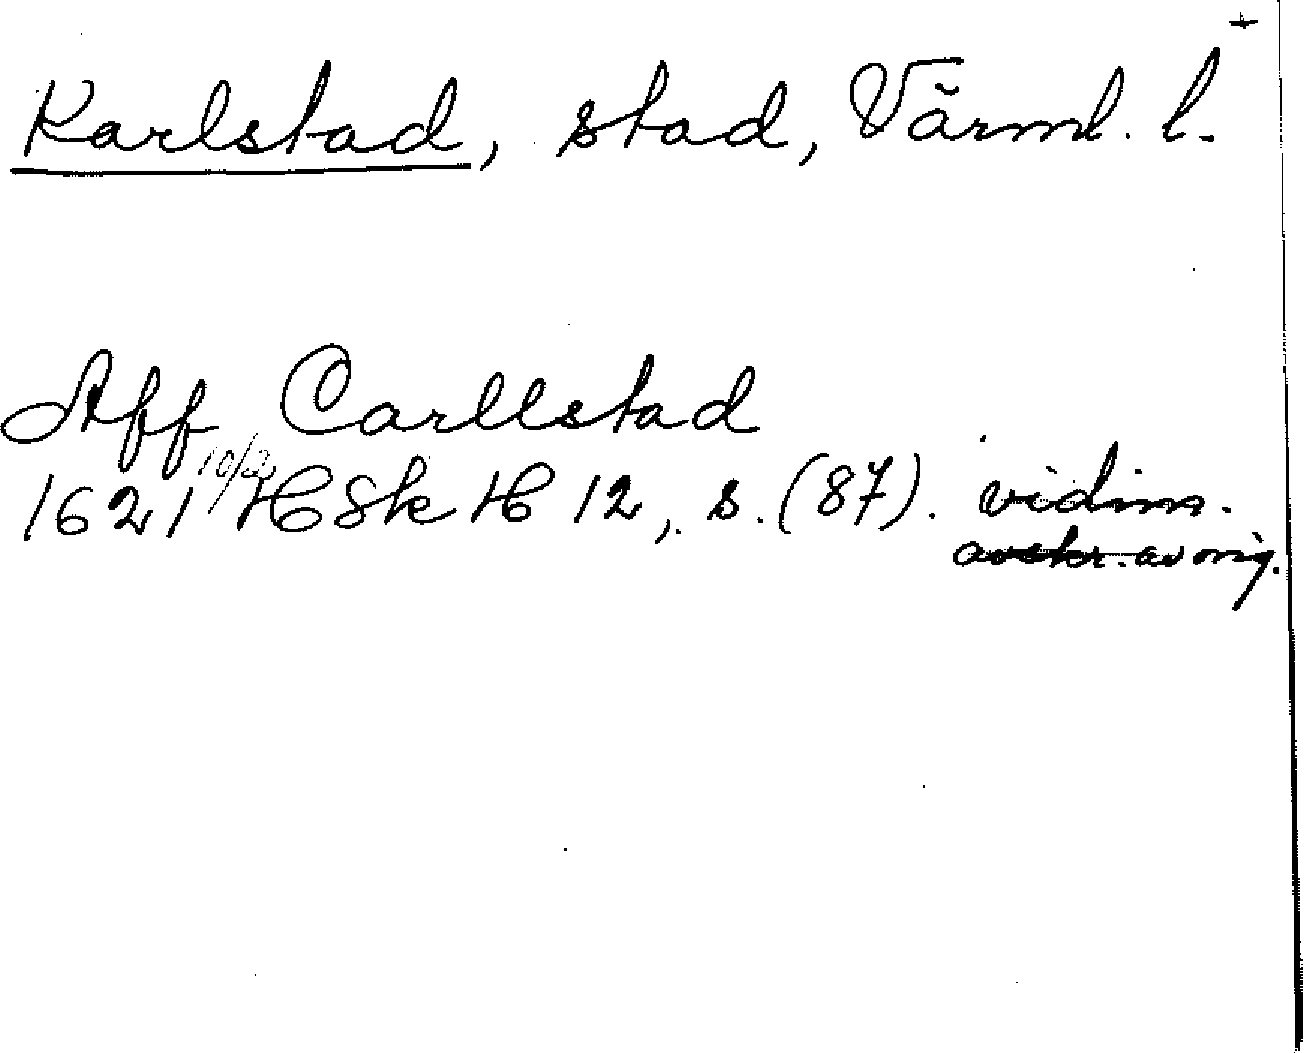 +
Karlstad, stad, Värml. l.
Aff Carllstad
1621 10/2 HSk H 12, s. (87). vidim.
avskr. av orig.